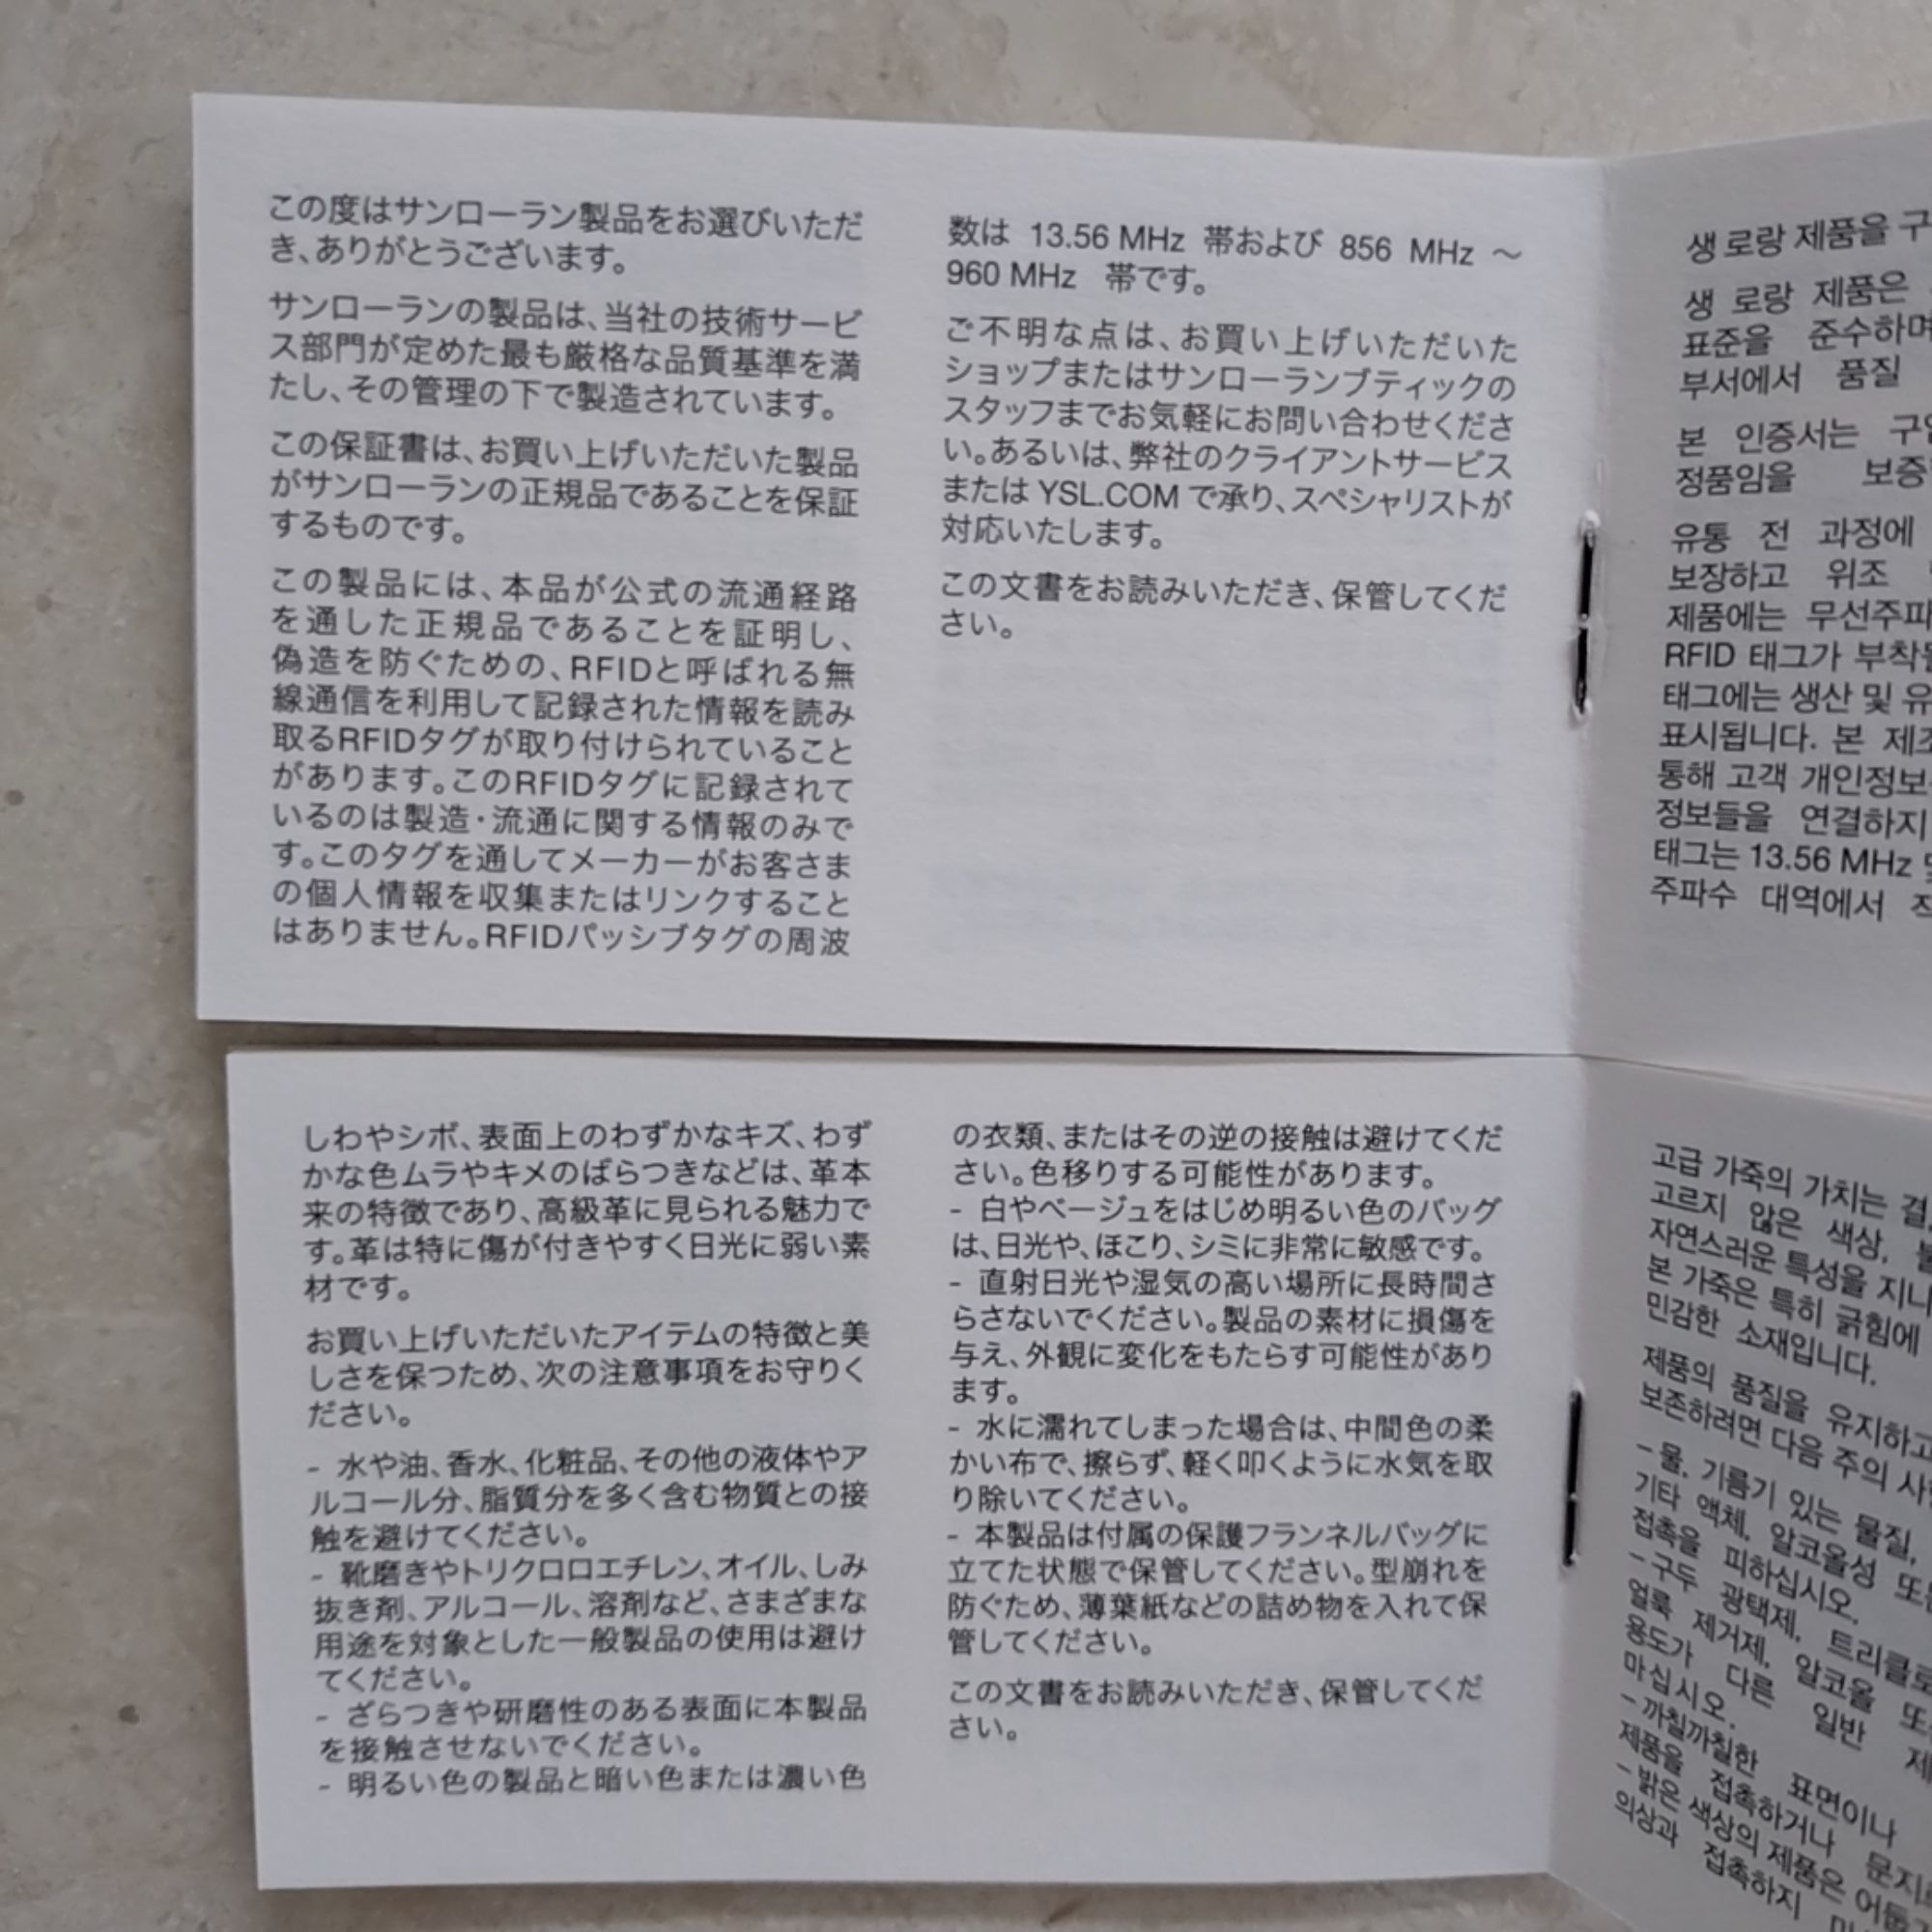 この度はサンローラン製品をお選びいただ
き、ありがとうございます。
サンローランの製品は、当社の技術サービ
ス部門が定めた最も厳格な品質基準を満
たし、その管理の下で製造されています。
この保証書は、お買い上げいただいた製品
がサンローランの正規品であることを保証
するものです。
この製品には、本品が公式の流通経路
を通した正規品であることを証明し、
偽造を防ぐための、RFIDと呼ばれる無
線通信を利用して記録された情報を読み
取るRFIDタグが取り付けられていること
があります。このRFIDタグに記録されて
いるのは製造・流通に関する情報のみで
す。このタグを通してメーカーがお客さま
の個人情報を収集またはリンクすること
はありません。RFIDパッシブタグの周波
数は 13.56 MHz 帯および 856 MHz ～
960 MHz 帯です。
ご不明な点は、お買い上げいただいた
ショップまたはサンローランブティックの
スタッフまでお気軽にお問い合わせくださ
い。あるいは、弊社のクライアントサービス
または YSL.COM で承り、スペシャリストが
対応いたします。
この文書をお読みいただき、保管してくだ
さい。
생 로랑 제품을
생 로랑 제품은
표준을 준수하며
부서에서 품질
본 인증서는
정품임을
유통 전 과정에
보장하고 위조
제품에는 무선주파
RFID 태그가
태그에는 생산 및
표시됩니다. 본
통해 고객
정보들을 연결하지
태그는 13.56 MHz
주파수 대역에서
しわやシボ、表面上のわずかなキズ、わず
かな色ムラやキメのばらつきなどは、革本
来の特徴であり、高級革に見られる魅力で
す。革は特に傷が付きやすく日光に弱い素
材です。
お買い上げいただいたアイテムの特徴と美
しさを保つため、次の注意事項をお守りく
ださい。
- 水や油、香水、化粧品、その他の液体やア
ルコール分、脂質分を多く含む物質との接
触を避けてください。
- 靴磨きやトリクロロエチレン、オイル、しみ
抜き剤、アルコール、溶剤など、さまざまな
用途を対象とした一般製品の使用は避け
てください。
- ざらつきや研磨性のある表面に本製品
を接触させないでください。
- 明るい色の製品と暗い色または濃い色
の衣類、またはその逆の接触は避けてくだ
さい。色移りする可能性があります。
- 白やベージュをはじめ明るい色のバッグ
は、日光や、ほこり、シミに非常に敏感です。
- 直射日光や湿気の高い場所に長時間さ
らさないでください。製品の素材に損傷を
与え、外観に変化をもたらす可能性があり
ます。
- 水に濡れてしまった場合は、中間色の柔
かい布で、擦らず、軽く叩くように水気を取
り除いてください。
- 本製品は付属の保護フランネルバッグに
立てた状態で保管してください。型崩れを
防ぐため、薄葉紙などの詰め物を入れて保
管してください。
この文書をお読みいただき、保管してくだ
さい。
고급 가죽의 가치는
고르지 않은 색상,
자연스러운 특성을
본 가죽은 특히 긁힘에
민감한 소재입니다.
제품의 품질을 유지하고
보존하려면 다음 주의
- 물, 기름기 있는 물질,
기타 액체, 알코올성
접촉을 피하십시오.
- 구두 광택제,
얼룩 제거제, 알코올
용도가 다른 일반
마십시오.
- 까칠까칠한 표면이나
제품을 접촉하거나
- 밝은 색상의 제품은
의상과 접촉하지